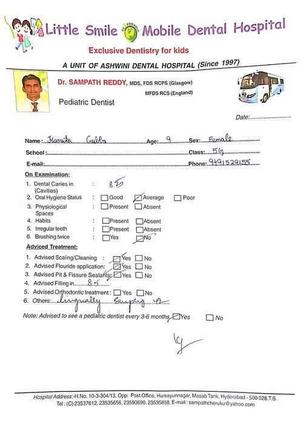 Little Smile Mobile Dental Hospital
Exclusive Dentistry for kids
A UNIT OF ASHWINI DENTAL HOSPITAL (Since 1997)
Dr. SAMPATH REDDY, MDS, FDS RCPS (Glasgow)
MFDS RCS (England)
Pediatric Dentist
Date:
Name: Age: 9 Sex: Female
School: Class: 5G
E-mail: Phone: 9491529155
On Examination:
1. Dental Caries in (Cavities) : 85
2. Oral Hygiene Status : Good Average Poor
3. Physiological Spaces : Present Absent
4. Habits : Present Absent
5. Irregular teeth : Present Absent
6. Brushing twice : Yes No
Adviced Treatment:
1. Advised Scaling/Cleaning : Yes No
2. Advised Flouride application: Yes No
3. Advised Pit & Fissure Sealants: Yes No
4. Advised Filling in 85
5. Advised Orthodontic treatment : Yes No
6. Others: lingually
Note: Advised to see a pediatric dentist every 3-6 months Yes No
Hospital Address: H.No. 10-3-304/13, Opp: Post Office, Humayunnagar, Masab Tank, Hyderabad - 500 028.T.S.
Tel: (C)-23537612, 23535656, 23590690, 23535658, E-mail : sampathcheruku@yahoo.com